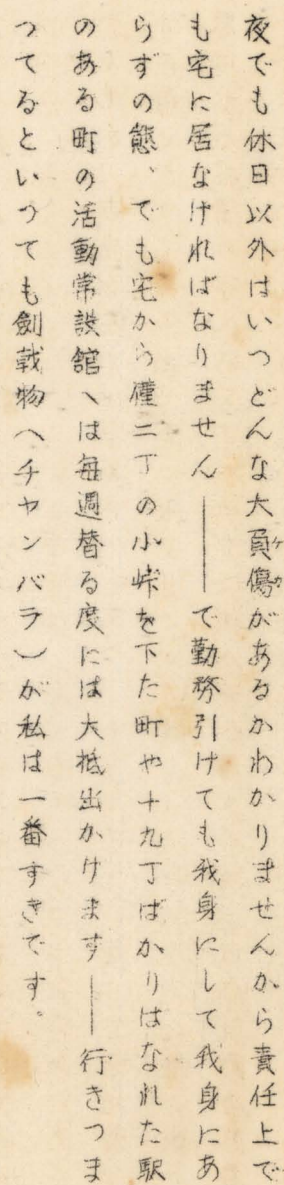 夜でも休日以外はいつどんな大負傷ケガがあるかわかりませんから責任上で
も宅に居なければなりません――で勤務引けても我身にして我身にあ
らずの態、でも宅から僅二丁の小峠を下た町や十九丁ばかりはなれた駅
のある町の活動常設館へは毎週替る度には大抵出かけます――行きつま
つてるといつても劍戟物(チヤンバラ)が私は一番すきです。